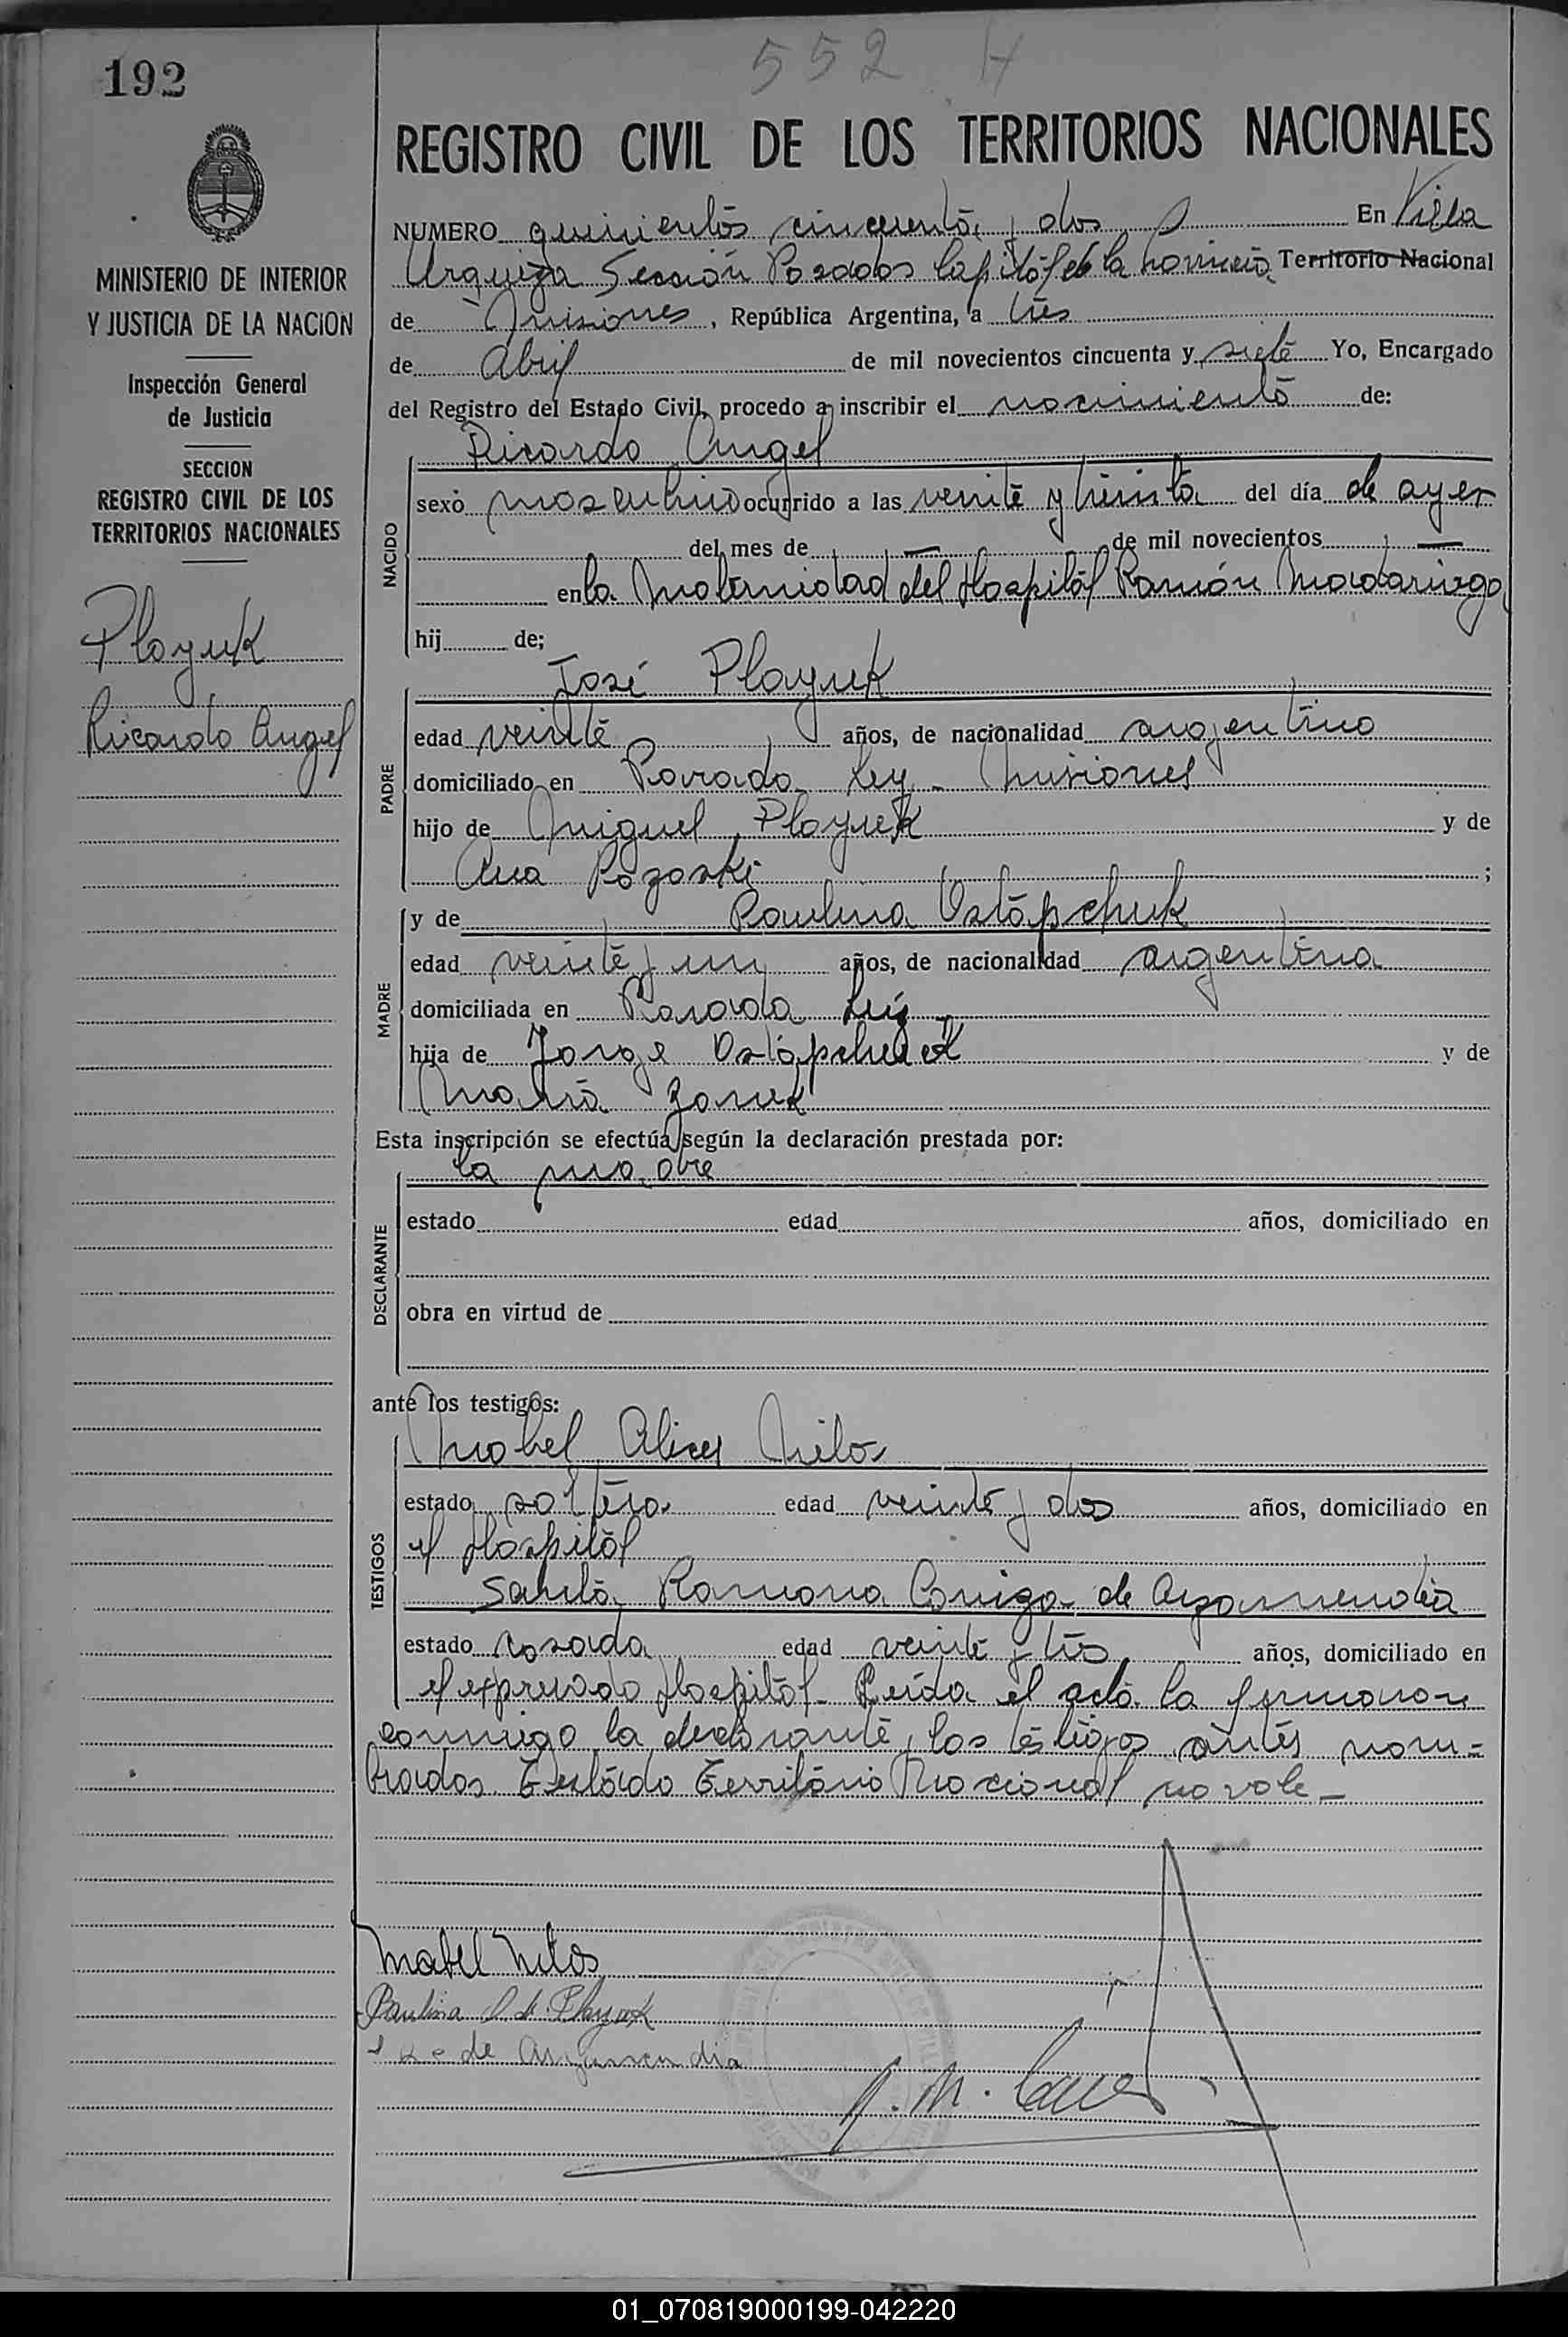 192
552 H
REGISTRO CIVIL DE LOS TERRITORIOS NACIONALES
MINISTERIO DE INTERIOR
Y JUSTICIA DE LA NACION
Inspección General
de Justicia
SECCION
REGISTRO CIVIL DE LOS
TERRITORIOS NACIONALES
Playuk
Ricardo Angel
NUMERO quinientos cincuenta y dos En Villa
Urquiza Sección Posadas Capital de la Provincia Territorio Nacional
de Misiones, República Argentina, a tres
de Abril de mil novecientos cincuenta y siete Yo, Encargado
del Registro del Estado Civil, procedo a inscribir el nacimiento de:
NACIDO
Ricardo Angel
sexo masculino ocurrido a las veinte y treinta del día de ayer
del mes de — de mil novecientos —
en la Maternidad del Hospital Ramón Madariaga
hij de;
PADRE
José Playuk
edad veinte años, de nacionalidad argentino
domiciliado en Parada Ley - Misiones
hijo de Miguel Playuk y de
Ana Pozoski ;
MADRE
y de Paulina Ostapchuk
edad veinte y un años, de nacionalidad argentina
domiciliada en Parada Ley
hija de Jorge Ostapchuk y de
María Zaruk
Esta inscripción se efectúa según la declaración prestada por:
DECLARANTE
la madre
estado edad años, domiciliado en
obra en virtud de
ante los testigos:
TESTIGOS
Mabel Alicia Milos
estado soltera edad veinte y dos años, domiciliado en
el Hospital
Santa Ramona de Ayamendia
estado casada edad veinte y tres años, domiciliado en
el expresado Hospital - Leída el acta la firmaron
conmigo la declarante, los testigos antes nom=
brados. Testado Territorio Nacional no vale -
Mabel Milos
Paulina O. de Playuk
de
01_070819000199-042220